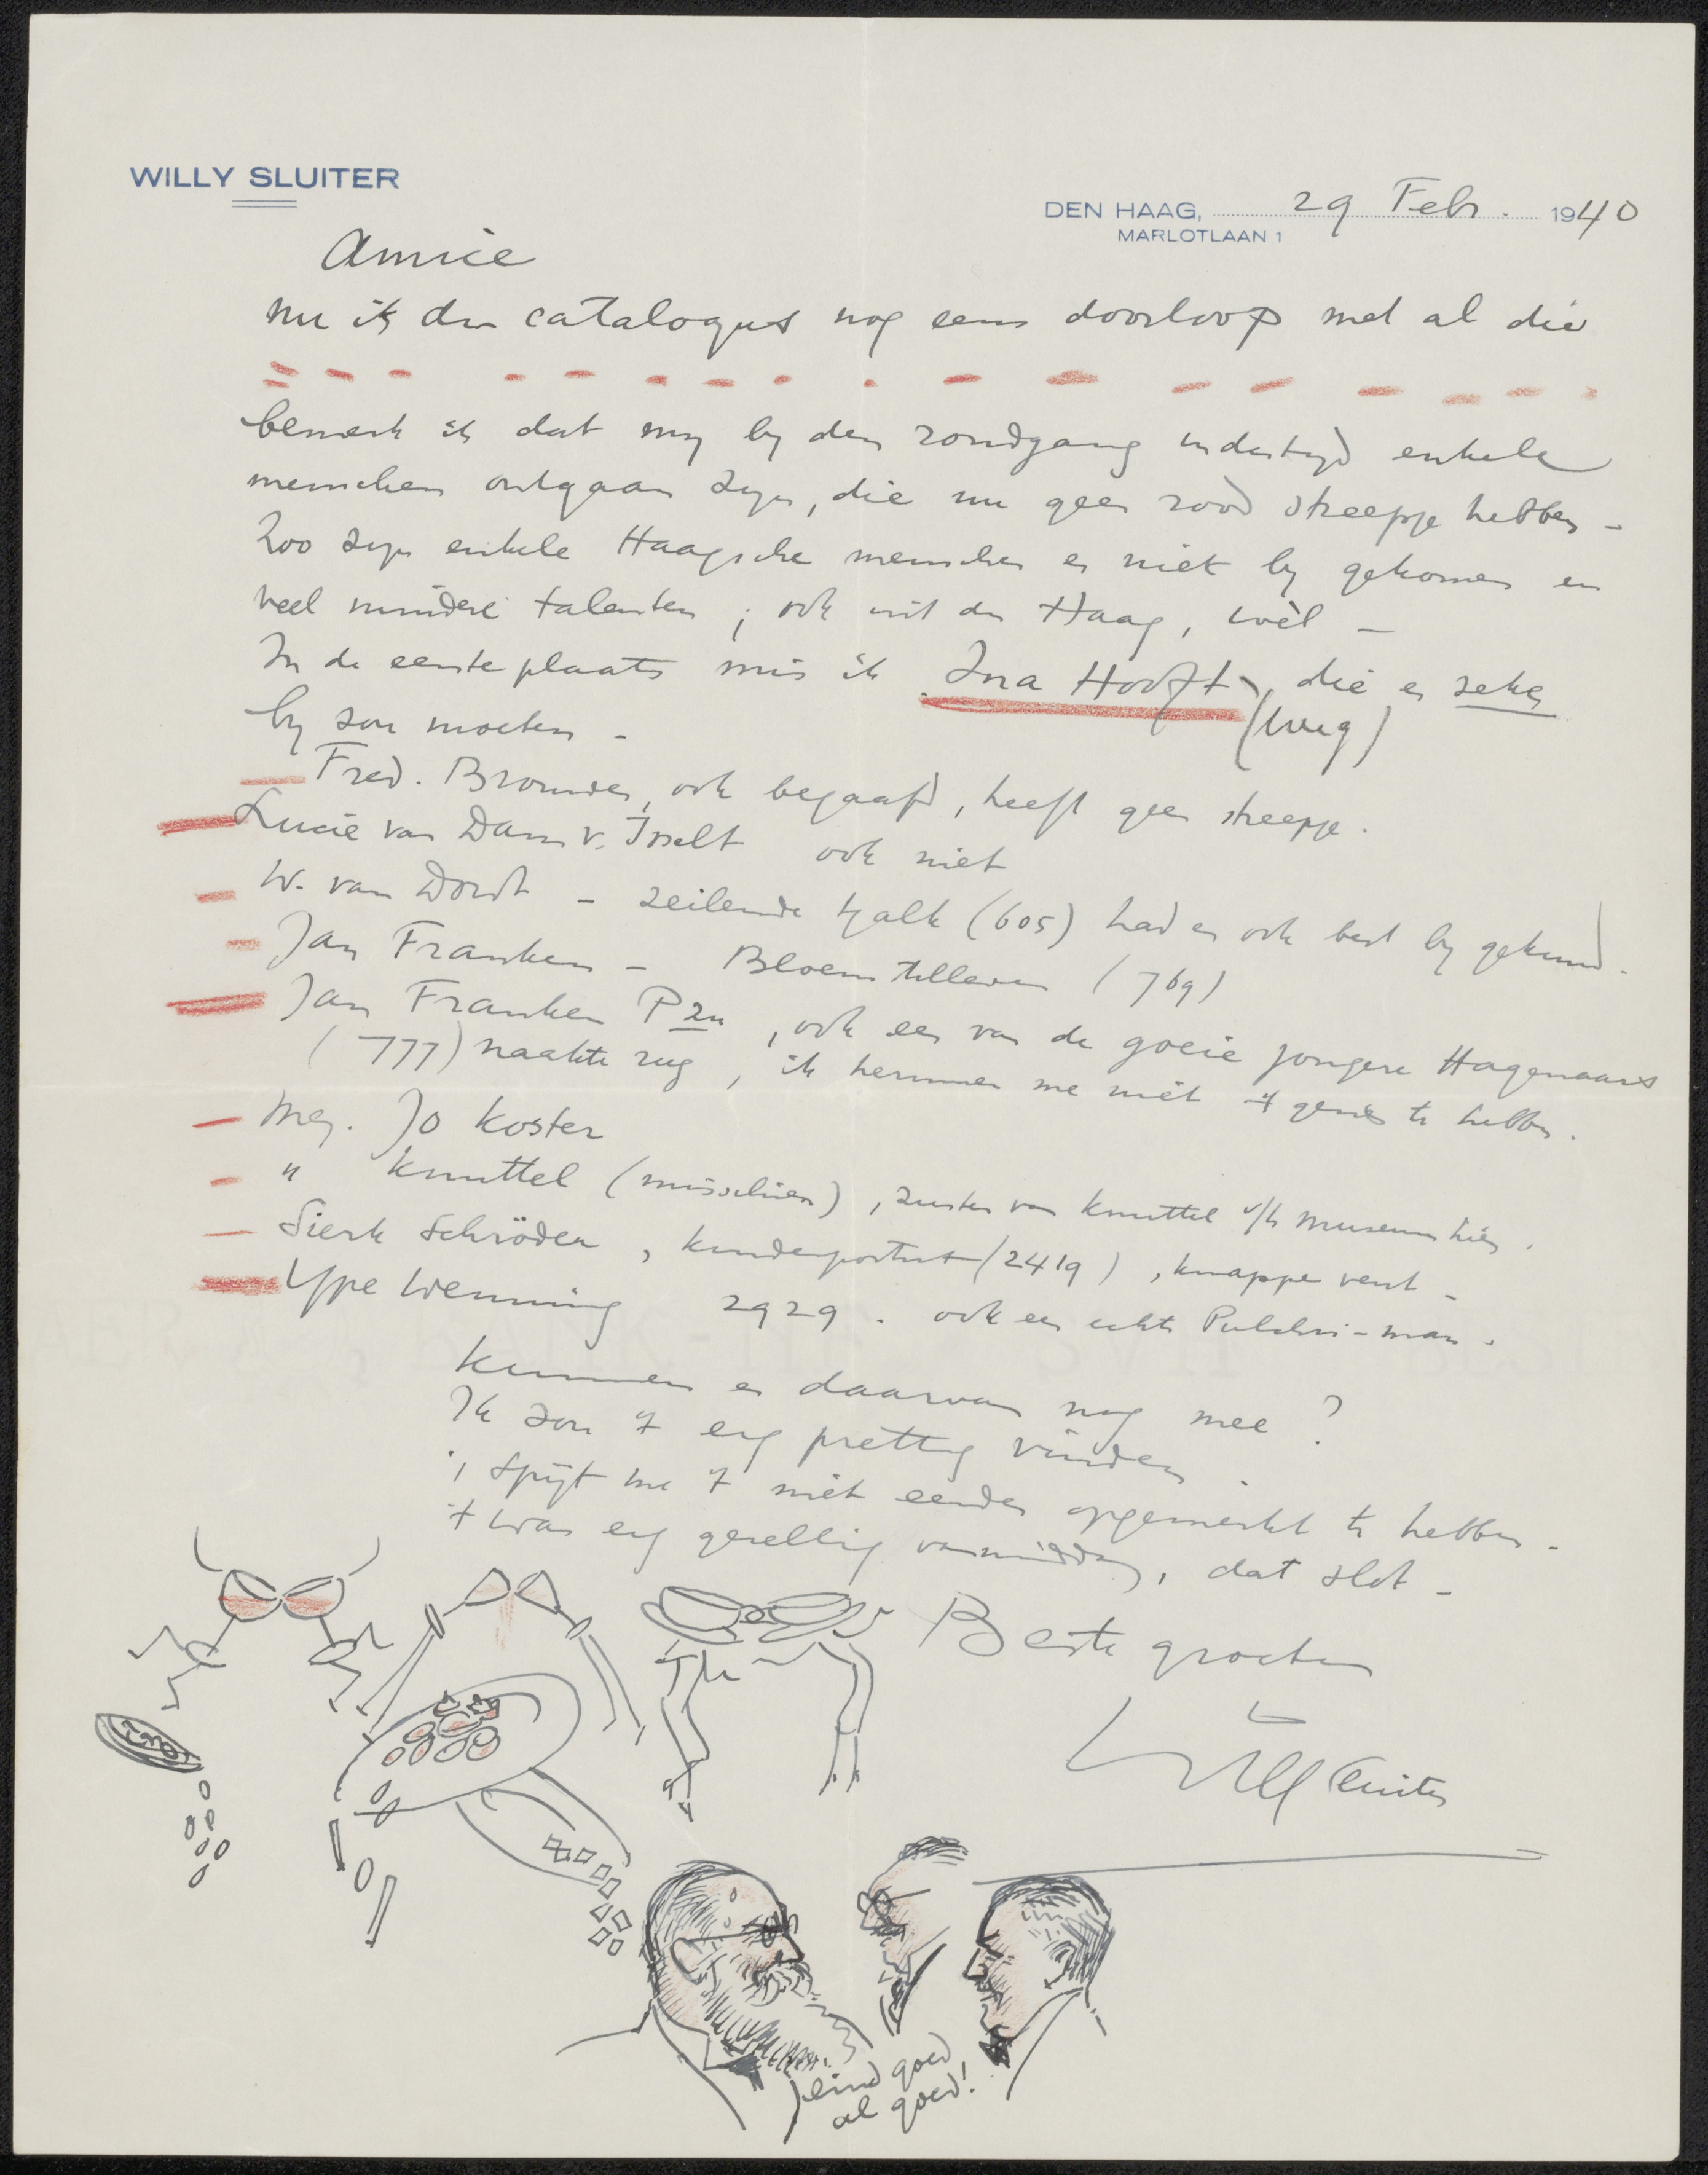 WILLY SLUITER
DEN HAAG, 29 Febr. 1940
MARLOTLAAN 1
Amice
nu ik den catalogus nog eens doorloop met al die
bemerk ik dat my by den rondgang indertyd enkele
menschen ontgaan zyn, die nu geen rood streepje hebben -
Zoo zyn enkele Haagsche menschen er niet by gekomen en
veel mindere talenten, ook uit den Haag, wèl -
In de eerste plaats mis ik Ina Hooft, die er zeker
(weg)
by zou moeten -
Fred. Brouwer, ook begaafd, heeft geen streepje.
Lucie van Dam v. Isselt ook niet
W. van Dordt - zeilende tjalk (605) had er ook best by gekund.
Jan Franken - Bloemstilleven (769)
Jan Franken Pzn, ook een van de goeie jongere Hagenaars
(777) naakte rug, ik herinner me niet 't gezien te hebben.
Mej. Jo Koster
" Knuttel (misschien), zuster van Knuttel v/h Museum hier.
Sierk Schröder, kinderportret (2419), knappe vent -
Ype Wenning 2929. ook een echte Pulchri-man.
Kunnen er daarvan nog mee?
Ik zou 't erg prettig vinden.
't spijt me 't niet eerder opgemerkt te hebben.
't was erg gezellig vanmiddag, dat slot -
Beste groeten
Willy Sluiter
eind goed
al goed!